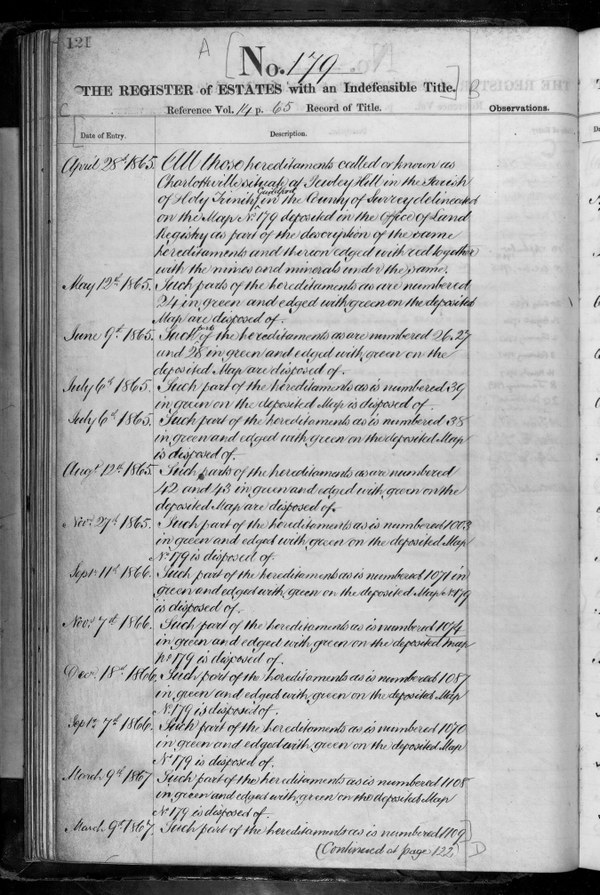 121
A [
No. 179
THE REGISTER of ESTATES with an Indefeasible Title. ] B
C
Reference Vol. 14 p. 65 Record of Title.
Observations.
[
Date of Entry.
Description.
April 28th 1865. All those hereditaments called or known as
Charlotteville situate at Pewley Hill in the Parish
of Holy Trinity Guildford in the County of Surrey delineated
on the Map No 179 deposited in the Office of Land
Registry as part of the description of the same
hereditaments and thereon edged with red together
with the mines and minerals under the same.
May 12th 1865. Such parts of the hereditaments as are numbered
24 in green and edged with green on the deposited
Map are disposed of.
June 9th 1865. Such parts of the hereditaments as are numbered 26, 27
and 28 in green and edged with green on the
deposited Map are disposed of.
July 6th 1865. Such part of the hereditaments as is numbered 39
in green on the deposited Map is disposed of.
July 6th 1865. Such part of the hereditaments as is numbered 38
in green and edged with green on the deposited Map
is disposed of.
Augt 12th 1865. Such parts of the hereditaments as are numbered
42 and 43 in green and edged with green on the
deposited Map are disposed of.
Novr 27th 1865. Such part of the hereditaments as is numbered 1003
in green and edged with green on the deposited Map
No 179 is disposed of.
Septr 11th 1866. Such part of the hereditaments as is numbered 1071 in
green and edged with green on the deposited Map No 179
is disposed of.
Novr 7th 1866. Such part of the hereditaments as is numbered 1074
in green and edged with green on the deposited Map
No 179 is disposed of.
Decr 18th 1866. Such part of the hereditaments as is numbered 1087
in green and edged with green on the deposited Map
No 179 is disposed of.
Septr 7th 1866. Such part of the hereditaments as is numbered 1070
in green and edged with green on the deposited Map
No 179 is disposed of.
March 9th 1867. Such part of the hereditaments as is numbered 1108
in green and edged with green on the deposited Map
No 179 is disposed of.
March 9th 1867. Such part of the hereditaments as is numbered 1109
(Continued at page 122) ] D